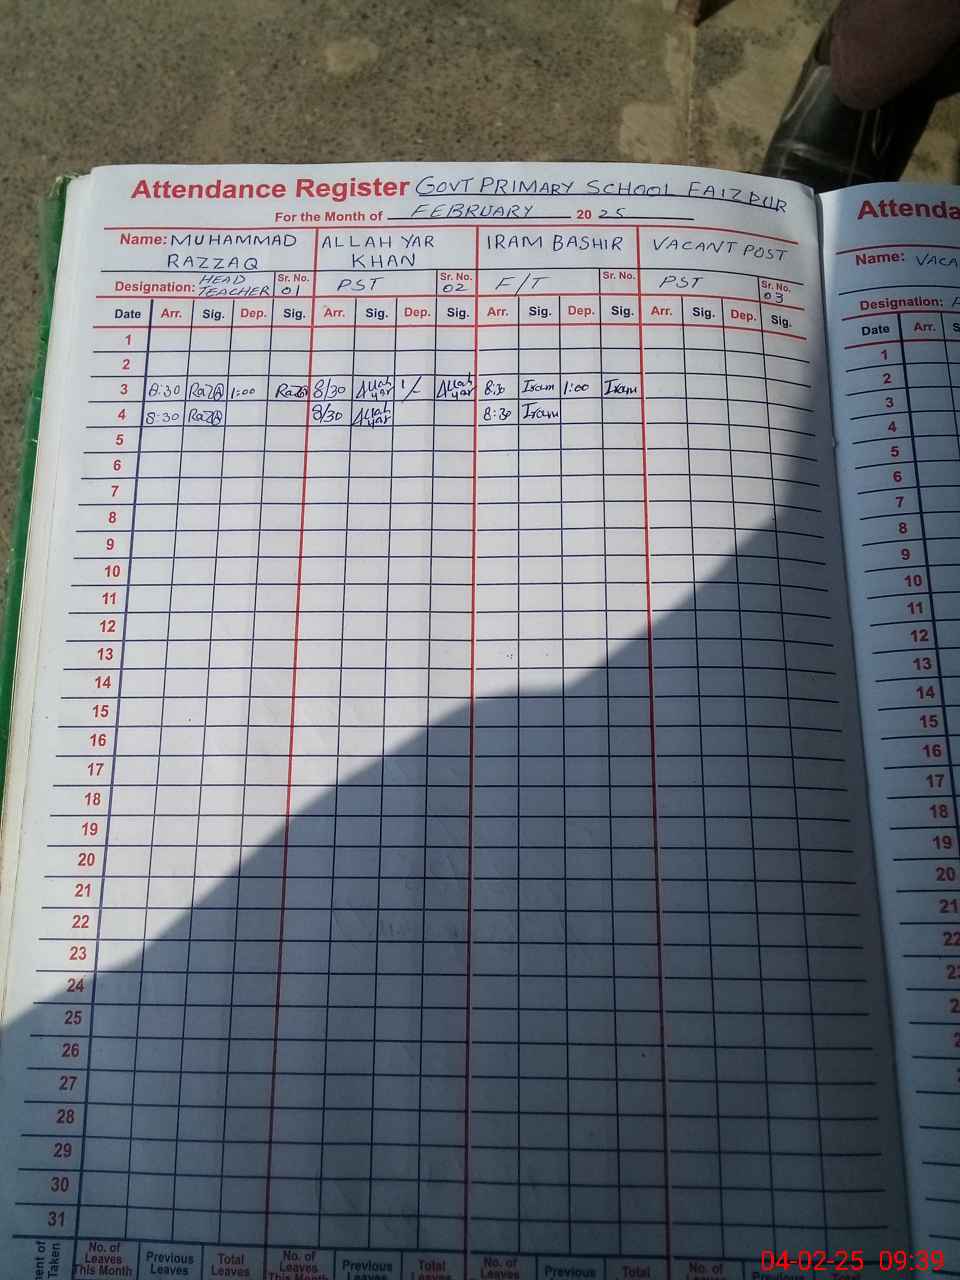 Attendance Register GOVT PRIMARY SCHOOL FAIZPUR
For the Month of FEBRUARY 20 25
Name: MUHAMMAD RAZZAQ ALLAH YAR KHAN IRAM BASHIR VACANT POST
Designation: HEAD TEACHER Sr. No. 01 PST Sr. No. 02 F/T Sr. No. PST Sr. No. 03
Date Arr. Sig. Dep. Sig. Arr. Sig. Dep. Sig. Arr. Sig. Dep. Sig. Arr. Sig. Dep. Sig.
1
2
3 8:30 1:00 8/30 Allah yar 1/- Allah yar 8:30 Iram 1:00 Iram
4 8:30 8/30 Allah yar 8:30 Iram
5
6
7
8
9
10
11
12
13
14
15
16
17
18
19
20
21
22
23
24
25
26
27
28
29
30
31
No. of Leaves This Month Previous Leaves Total Leaves No. of Leaves This Month Previous Leaves Total Leaves No. of Leaves Previous Total No. of
Taken
Attenda
Name: VACA
Designation:
Date Arr. S
1
2
3
4
5
6
7
8
9
10
11
12
13
14
15
16
17
18
19
20
21
22
04-02-25 09:39